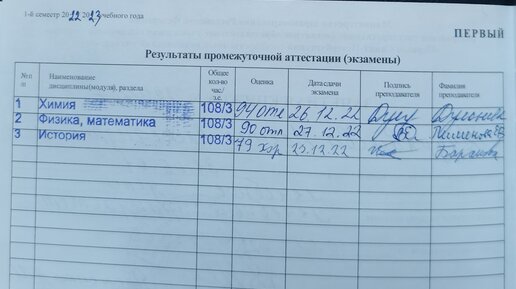 1-й семестр 2022/2023 учебного года
ПЕРВЫЙ
Результаты промежуточной аттестации (экзамены)
№ п/п Наименование дисциплины(модуля), раздела Общее кол-во час/з.е. Оценка Дата сдачи экзамена Подпись преподавателя Фамилия преподавателя
1 Химия 108/3 94 отл 26.12.22
2 Физика, математика 108/3 90 отл 27.12.22
3 История 108/3 79 хор 23.12.22 Баранова